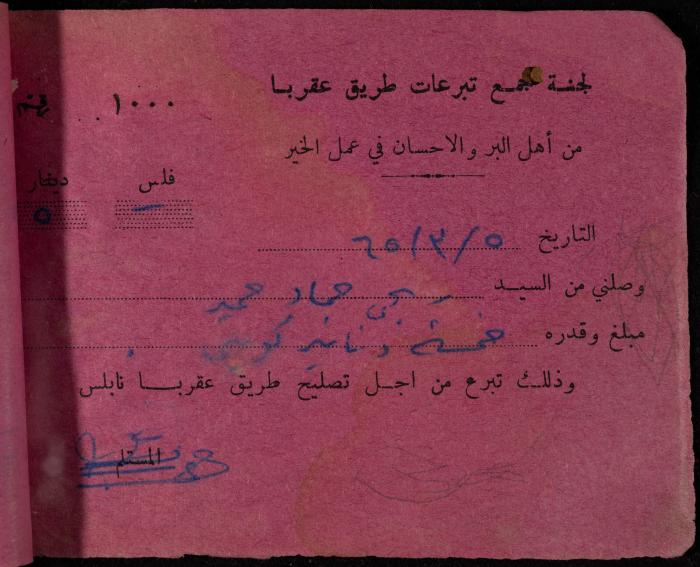 لجنة جمع تبرعات طريق عقربا
من أهل البر والاحسان في عمل الخير
١٠٠٠
فلس دينار
— ٥
التاريخ ٦٥/٣/٥
وصلني من السيد حماد حمير
مبلغ وقدره خمسة دنانير كويتي
وذلك تبرع من اجل تصليح طريق عقربا نابلس
المستلم